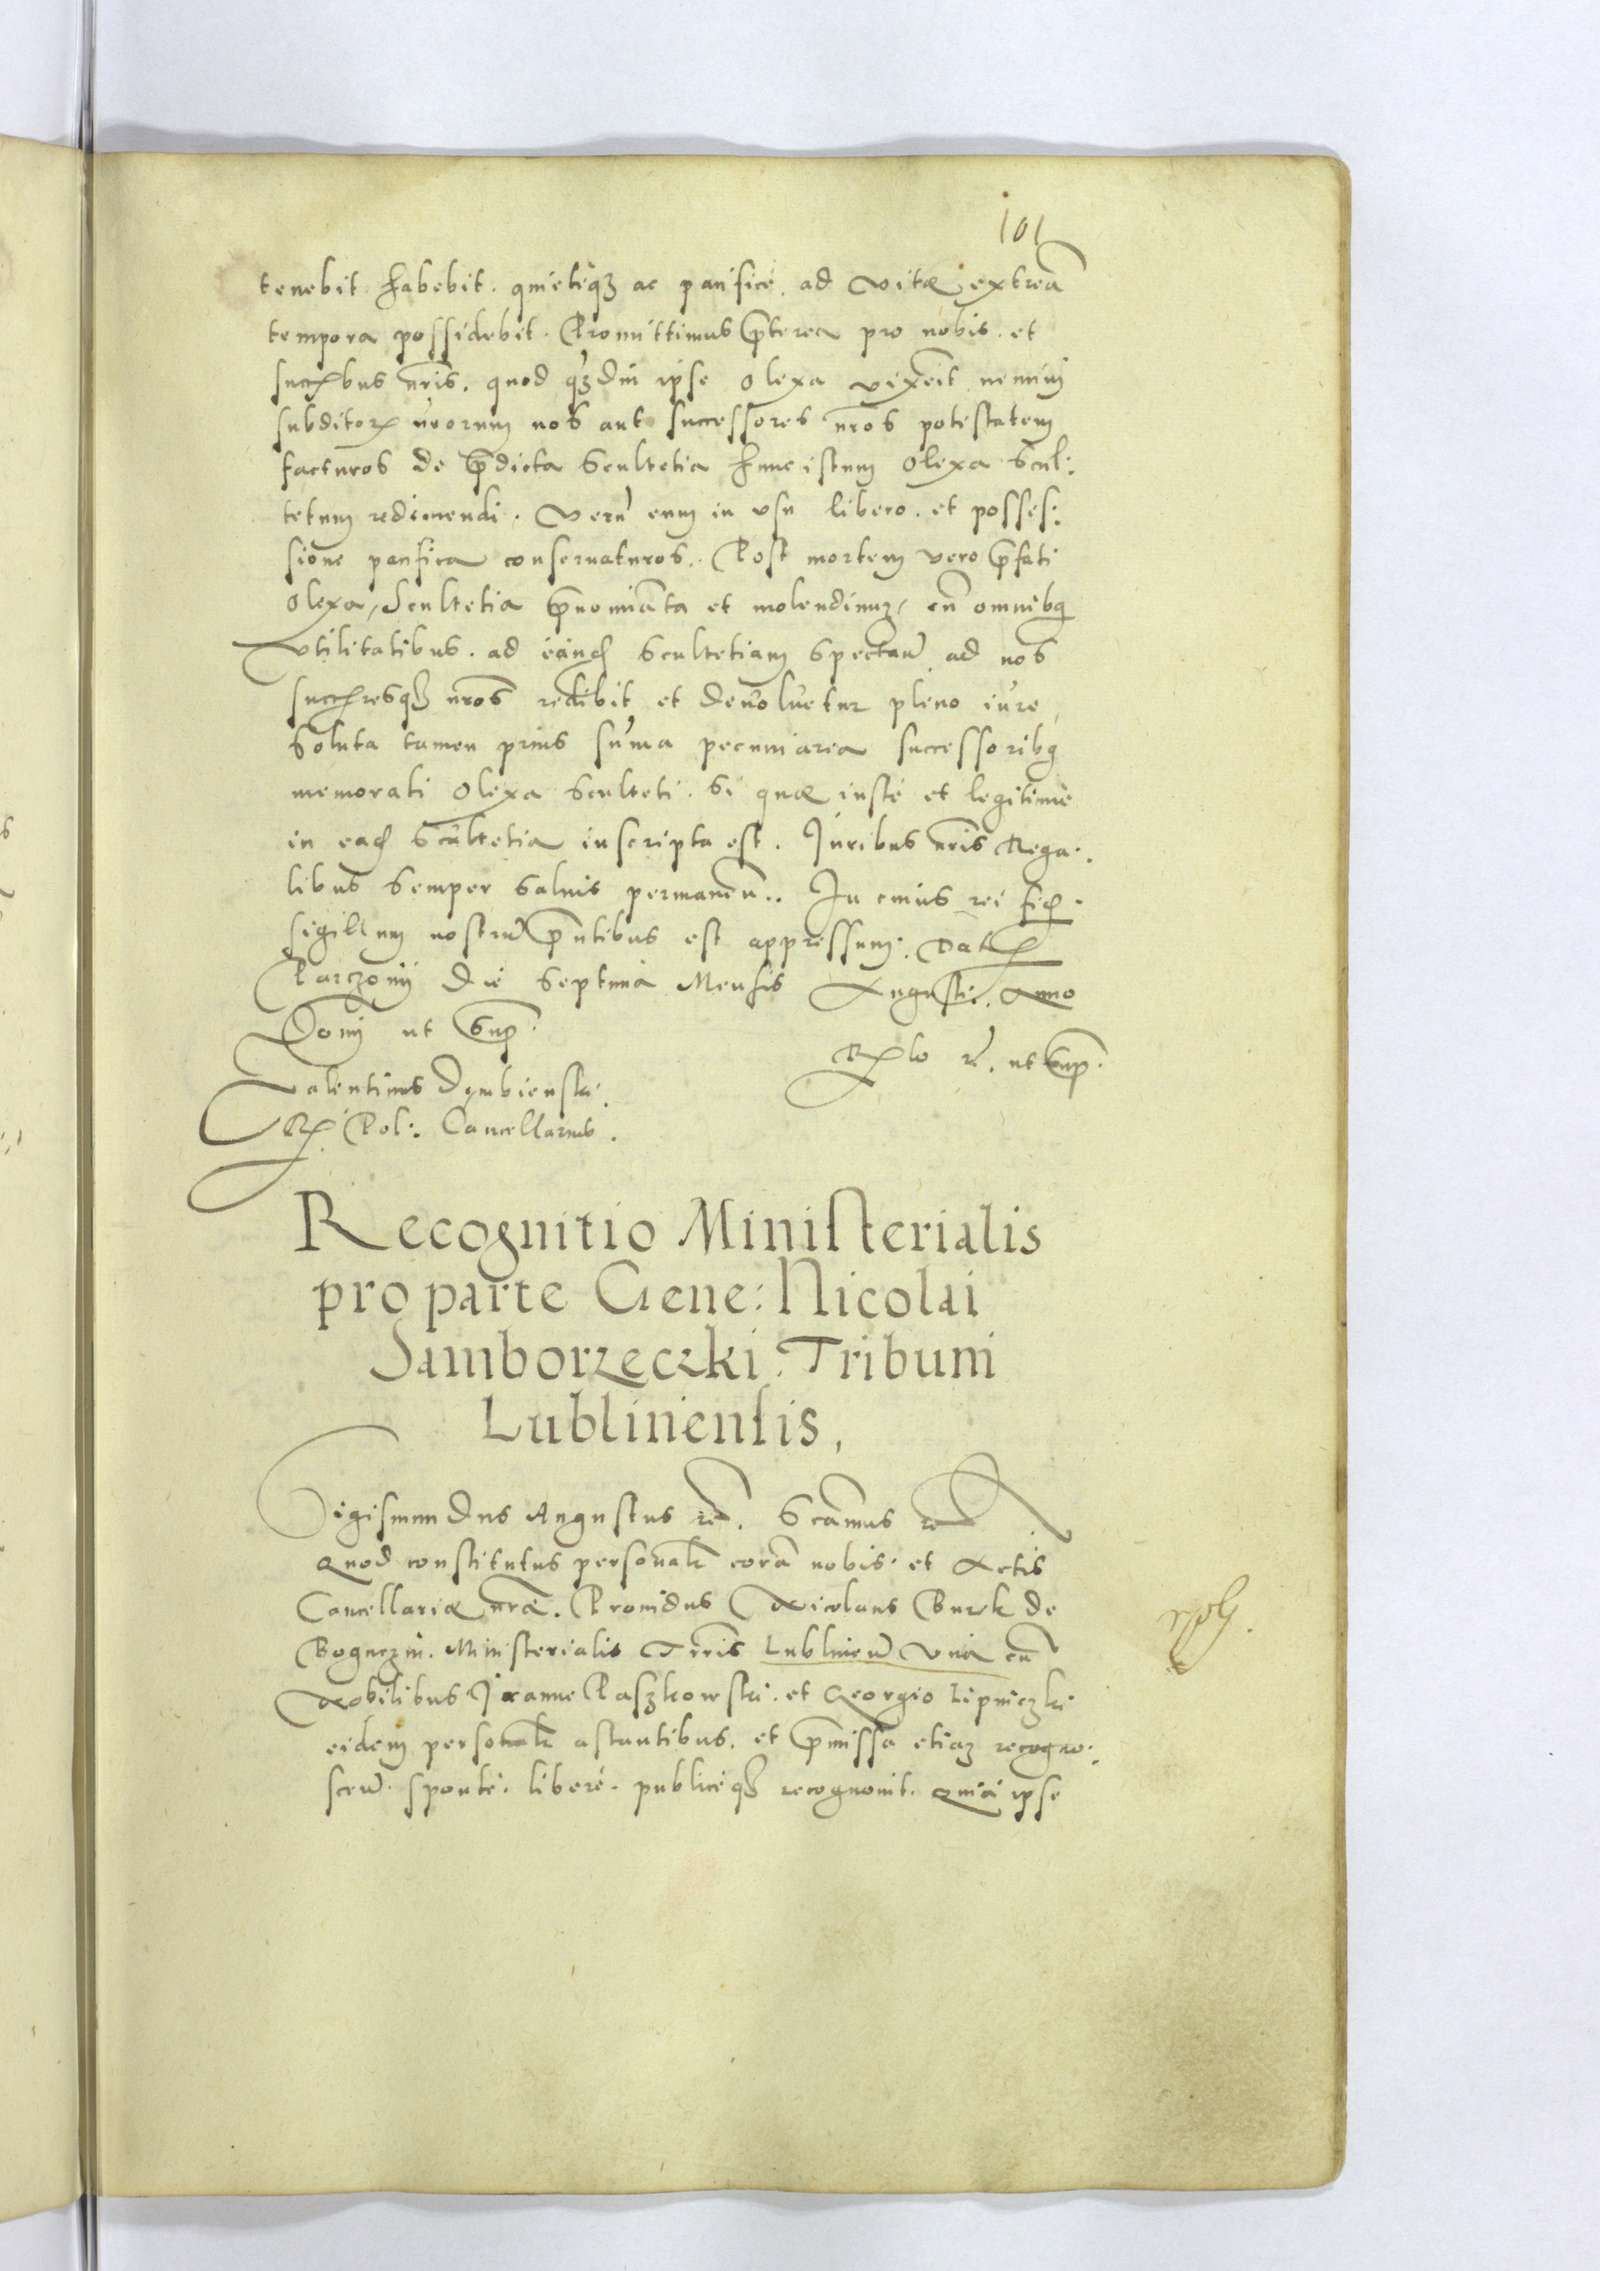 101
tenebit habebit. quietéq₃ ac pacificé. ad vitæ extrea᷃
tempora possidebit. Promittimus p̃terea pro nobis. et
succꝝbus nr̃is. quod q᷃₃diu ipse Olexa vixẽit nemini
subditoꝝ nr̃orum nos aut successores nr̃os potestatem
facturos de p̃dicta Scultetia hunc istum Olexa Scul:
tetum redimendi. Verũ eum in vsu libero. et posses:
sione pacifica conseruaturos. Post mortem vero p̃fati
Olexa, Scultetia p̃nomiãta et molendinuꝫ, cũ omnibꝯ
vtilitatibus. ad eandꝫ Scultetiam spectañ ad nos
succꝝresqꝫ nr̃os redibit et deuoluetur pleno iure,
Soluta tamen prius sum̃a pecuniaria successoribꝯ
memorati Olexa Sculteti. Si quæ iusté et legitimé
in eadꝫ Scultetia inscripta est. Juribus nr̃is Rega:
libus semper saluis permaneñ.. In cuius rei fidꝫ.
Sigillum nostrũ p̃ntibus est appressum. Datꝫ
Parczouij die Septima Mensis Augusti. Anno
Domj ut Supꝫ.
Rꝫlo rẽ. ut supꝫ.
Valentinus Dembienski.
Rꝫ Pol: Cancellarius.
Recognitio Ministerialis
pro parte Gene: Nicolai
Samborzeczki. Tribuni
Lubliniensis,
Sigismundus Augustus rẽ. Scam̃us rẽ
Quod constitutus personalꝫ corã nobis. et Actis
Cancellariæ nr̃æ. Prouidus Nicolaus Burk de
Boguczin. Ministerialis Terr̃is Lublineñ vna cũ
Nobilibus Joanne Paszkowski. et Georgio Lipniczki
eidem personalꝫ astantibus. et p̃missa etiaꝫ recogno:
sceñ. sponté. liberé. publicéqꝫ recognouit. Quia ipse